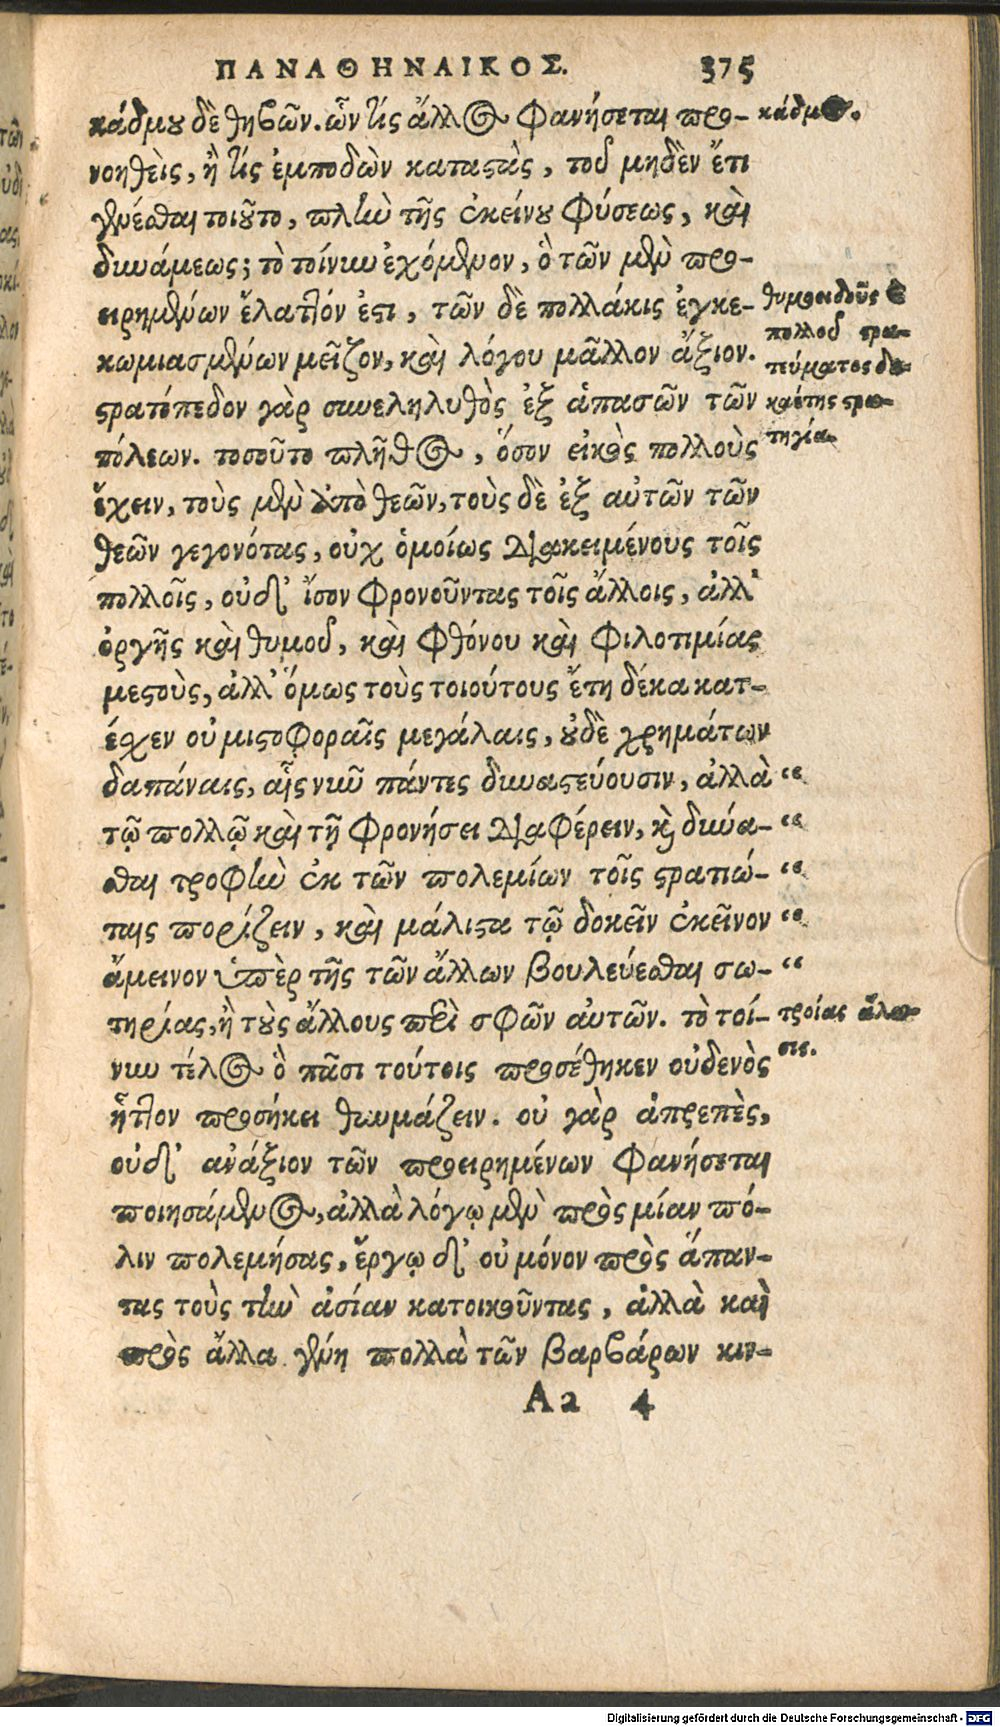 ΠΑΝΑΘΗΝΑΙΚΟΣ. 375
κάδμου δὲ θηβῶν. ὧν τίς ἄλλος φανήσεται προ- κάδμος.
νοηθεὶς, ἢ τίς ἐμποδὼν καταστὰς, τοῦ μηδὲν ἔτι
γενέσθαι τοιοῦτο, πλὴν τῆς ἐκείνου φύσεως, καὶ
δυνάμεως; τὸ τοίνυν ἐχόμενον, ὃ τῶν μὲν προ-
ειρημένων ἔλαττόν ἐστι, τῶν δὲ πολλάκις ἐγκε- θυμοειδοῦς καὶ
κωμιασμένων μεῖζον, καὶ λόγου μᾶλλον ἄξιον. πολλοῦ στρα-
στρατόπεδον γὰρ συνεληλυθὸς ἐξ ἁπασῶν τῶν τεύματος δε-
πόλεων. τοσοῦτο πλῆθος, ὅσον εἰκὸς πολλοὺς καέτης στρα-
ἔχειν, τοὺς μὲν ἀπὸ θεῶν, τοὺς δὲ ἐξ αὐτῶν τῶν τηγία.
θεῶν γεγονότας, οὐχ ὁμοίως διακειμένους τοῖς
πολλοῖς, οὐδ' ἴσον φρονοῦντας τοῖς ἄλλοις, ἀλλ'
ὀργῆς καὶ θυμοῦ, καὶ φθόνου καὶ φιλοτιμίας
μεστοὺς, ἀλλ' ὅμως τοὺς τοιούτους ἔτη δέκα κατ-
έσχεν οὐ μισθοφοραῖς μεγάλαις, οὐδὲ χρημάτων
δαπάναις, αἷς νῦν πάντες δυναστεύουσιν, ἀλλὰ “
τῷ πολλῷ καὶ τῇ φρονήσει διαφέρειν, καὶ δύνα- “
σθαι τροφὴν ἐκ τῶν πολεμίων τοῖς στρατιώ- “
ταις πορίζειν, καὶ μάλιστα τῷ δοκεῖν ἐκεῖνον “
ἄμεινον ὑπὲρ τῆς τῶν ἄλλων βουλεύεσθαι σω- “
τηρίας, ἢ τοὺς ἄλλους περὶ σφῶν αὐτῶν. τὸ τοί- τροίας ἅλω-
νυν τέλος ὃ πᾶσι τούτοις προσέθηκεν οὐδενὸς σις.
ἧττον προσήκει θαυμάζειν. οὐ γὰρ ἀπρεπὲς,
οὐδ' ἀνάξιον τῶν προειρημένων φανήσεται
ποιησάμενος, ἀλλὰ λόγῳ μὲν πρὸς μίαν πό-
λιν πολεμήσας, ἔργῳ δ' οὐ μόνον πρὸς ἅπαν-
τας τοὺς τὴν ἀσίαν κατοικοῦντας, ἀλλὰ καὶ
πρὸς ἄλλα γένη πολλὰ τῶν βαρβάρων κιν-
Aa 4
Digitalisierung gefördert durch die Deutsche Forschungsgemeinschaft - DFG